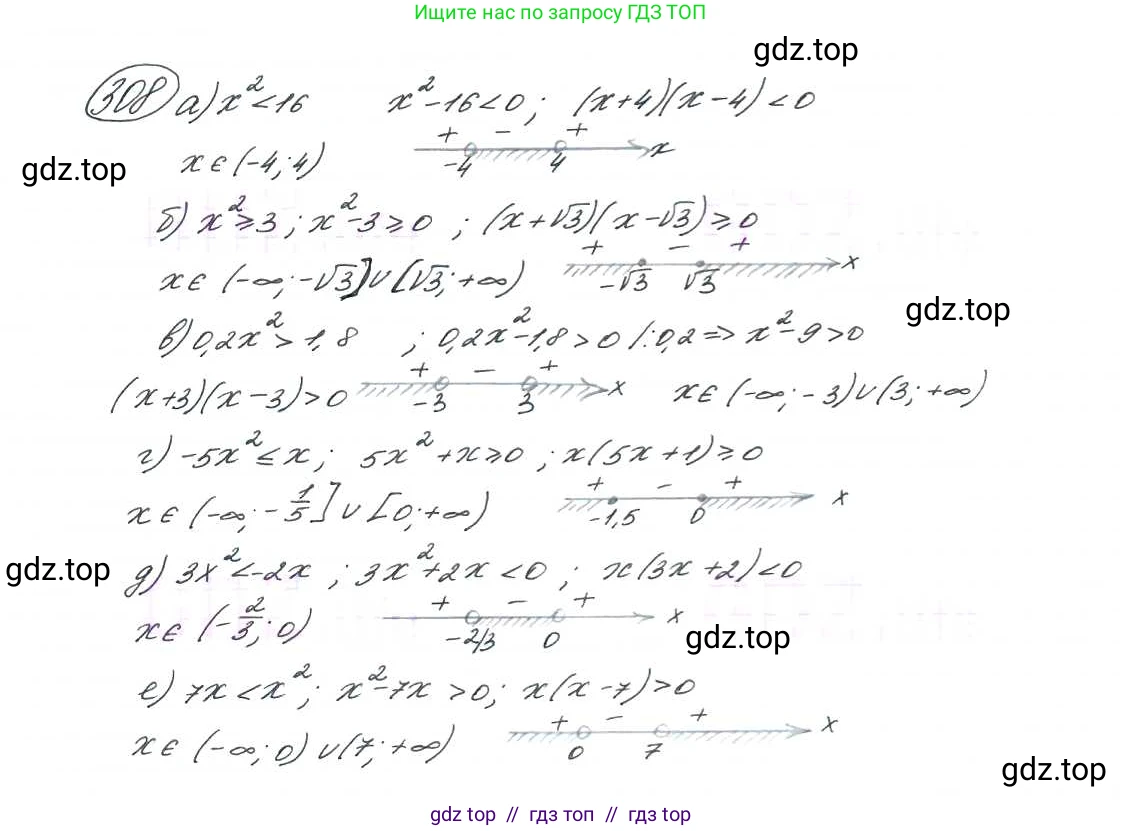 Ищите нас по запросу ГДЗ ТОП
gdz.top
308 а) x² < 16   x² - 16 < 0 ; (x + 4)(x - 4) < 0
+ - +
-4 4 x
x ∈ (-4; 4)
gdz.top
б) x² ≥ 3 ; x² - 3 ≥ 0 ; (x + √3)(x - √3) ≥ 0
+ - +
-√3 √3 x
x ∈ (-∞; -√3] ∪ [√3; +∞)
gdz.top
в) 0,2x² > 1,8 ; 0,2x² - 1,8 > 0 /: 0,2 => x² - 9 > 0
+ - +
-3 3 x
(x + 3)(x - 3) > 0   x ∈ (-∞; -3) ∪ (3; +∞)
г) -5x² ≤ x ; 5x² + x ≥ 0 ; x(5x + 1) ≥ 0
+ - +
-1,5 0 x
x ∈ (-∞; -1/5] ∪ [0; +∞)
gdz.top
д) 3x² < -2x ; 3x² + 2x < 0 ; x(3x + 2) < 0
+ - +
-2/3 0 x
x ∈ (-2/3; 0)
gdz.top
е) 7x < x² ; x² - 7x > 0 ; x(x - 7) > 0
+ - +
0 7 x
x ∈ (-∞; 0) ∪ (7; +∞)
gdz.top
gdz top // гдз топ // gdz top